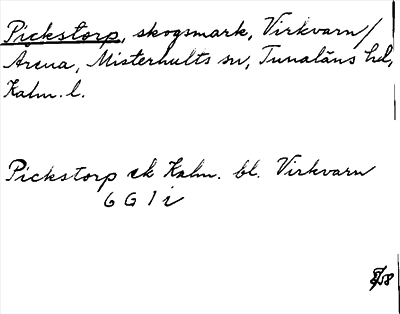 Pickstorp, skogsmark, Virkvarn/
Århna, Misterhults sn, Tunaläns hd,
Kalm. l.
Pickstorp ek Kalm. bl. Virkvarn
6 G 1 i